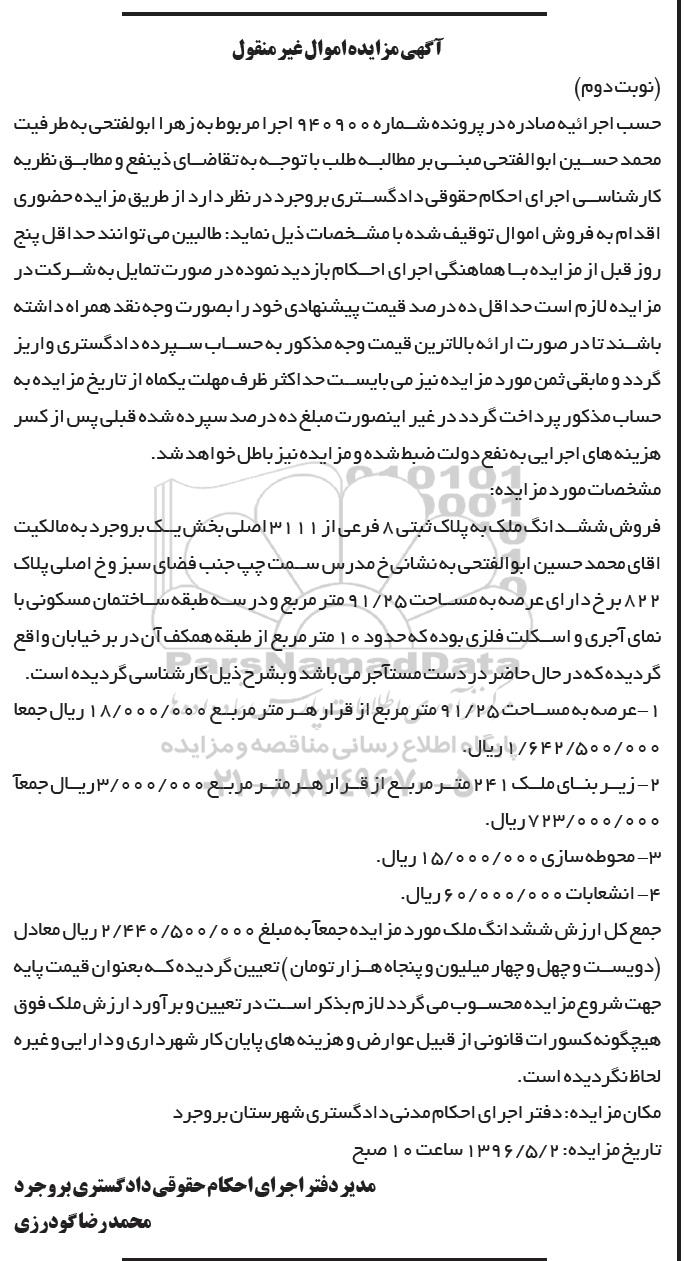 آگهی مزایده اموال غیر منقول
(نوبت دوم)
حسب اجرائیه صادره در پرونده شماره ۹۴۰۹۰۰ اجرا مربوط به زهرا ابولفتحی به طرفیت
محمد حسین ابوالفتحی مبنی بر مطالبه طلب با توجه به تقاضای ذینفع و مطابق نظریه
کارشناسی اجرای احکام حقوقی دادگستری بروجرد در نظر دارد از طریق مزایده حضوری
اقدام به فروش اموال توقیف شده با مشخصات ذیل نماید: طالبین می توانند حداقل پنج
روز قبل از مزایده با هماهنگی اجرای احکام بازدید نموده در صورت تمایل به شرکت در
مزایده لازم است حداقل ده درصد قیمت پیشنهادی خود را بصورت وجه نقد همراه داشته
باشند تا در صورت ارائه بالاترین قیمت وجه مذکور به حساب سپرده دادگستری واریز
گردد و مابقی ثمن مورد مزایده نیز می بایست حداکثر ظرف مهلت یکماه از تاریخ مزایده به
حساب مذکور پرداخت گردد در غیر اینصورت مبلغ ده درصد سپرده شده قبلی پس از کسر
هزینه های اجرایی به نفع دولت ضبط شده و مزایده نیز باطل خواهد شد.
مشخصات مورد مزایده:
فروش ششدانگ ملک به پلاک ثبتی ۸ فرعی از ۳۱۱۱ اصلی بخش یک بروجرد به مالکیت
اقای محمد حسین ابوالفتحی به نشانی خ مدرس سمت چپ جنب فضای سبز و خ اصلی پلاک
۸۲۲ بر خ دارای عرصه به مساحت ۹۱/۲۵ متر مربع و در سه طبقه ساختمان مسکونی با
نمای آجری و اسکلت فلزی بوده که حدود ۱۰ متر مربع از طبقه همکف آن در بر خیابان واقع
گردیده که در حال حاضر در دست مستآجر می باشد و بشرح ذیل کارشناسی گردیده است.
۱-عرصه به مساحت ۹۱/۲۵ متر مربع از قرار هر متر مربع ۱۸/۰۰۰/۰۰۰ ریال جمعا
۱/۶۴۲/۵۰۰/۰۰۰ ریال.
۲- زیر بنای ملک ۲۴۱ متر مربع از قرار هر متر مربع ۳/۰۰۰/۰۰۰ ریال جمعآ
۷۲۳/۰۰۰/۰۰۰ ریال.
۳- محوطه سازی ۱۵/۰۰۰/۰۰۰ ریال.
۴- انشعابات ۶۰/۰۰۰/۰۰۰ ریال.
جمع کل ارزش ششدانگ ملک مورد مزایده جمعآ به مبلغ ۲/۴۴۰/۵۰۰/۰۰۰ ریال معادل
(دویست و چهل و چهار میلیون و پنجاه هزار تومان) تعیین گردیده که بعنوان قیمت پایه
جهت شروع مزایده محسوب می گردد لازم بذکر است در تعیین و برآورد ارزش ملک فوق
هیچگونه کسورات قانونی از قبیل عوارض و هزینه های پایان کار شهرداری و دارایی و غیره
لحاظ نگردیده است.
مکان مزایده: دفتر اجرای احکام مدنی دادگستری شهرستان بروجرد
تاریخ مزایده: ۱۳۹۶/۵/۲ ساعت ۱۰ صبح
مدیر دفتر اجرای احکام حقوقی دادگستری بروجرد
محمدرضا گودرزی
ParsNamadData
پایگاه اطلاع رسانی مناقصه و مزایده
۰۲۱-۸۸۳۴۹۶۷۰-۵